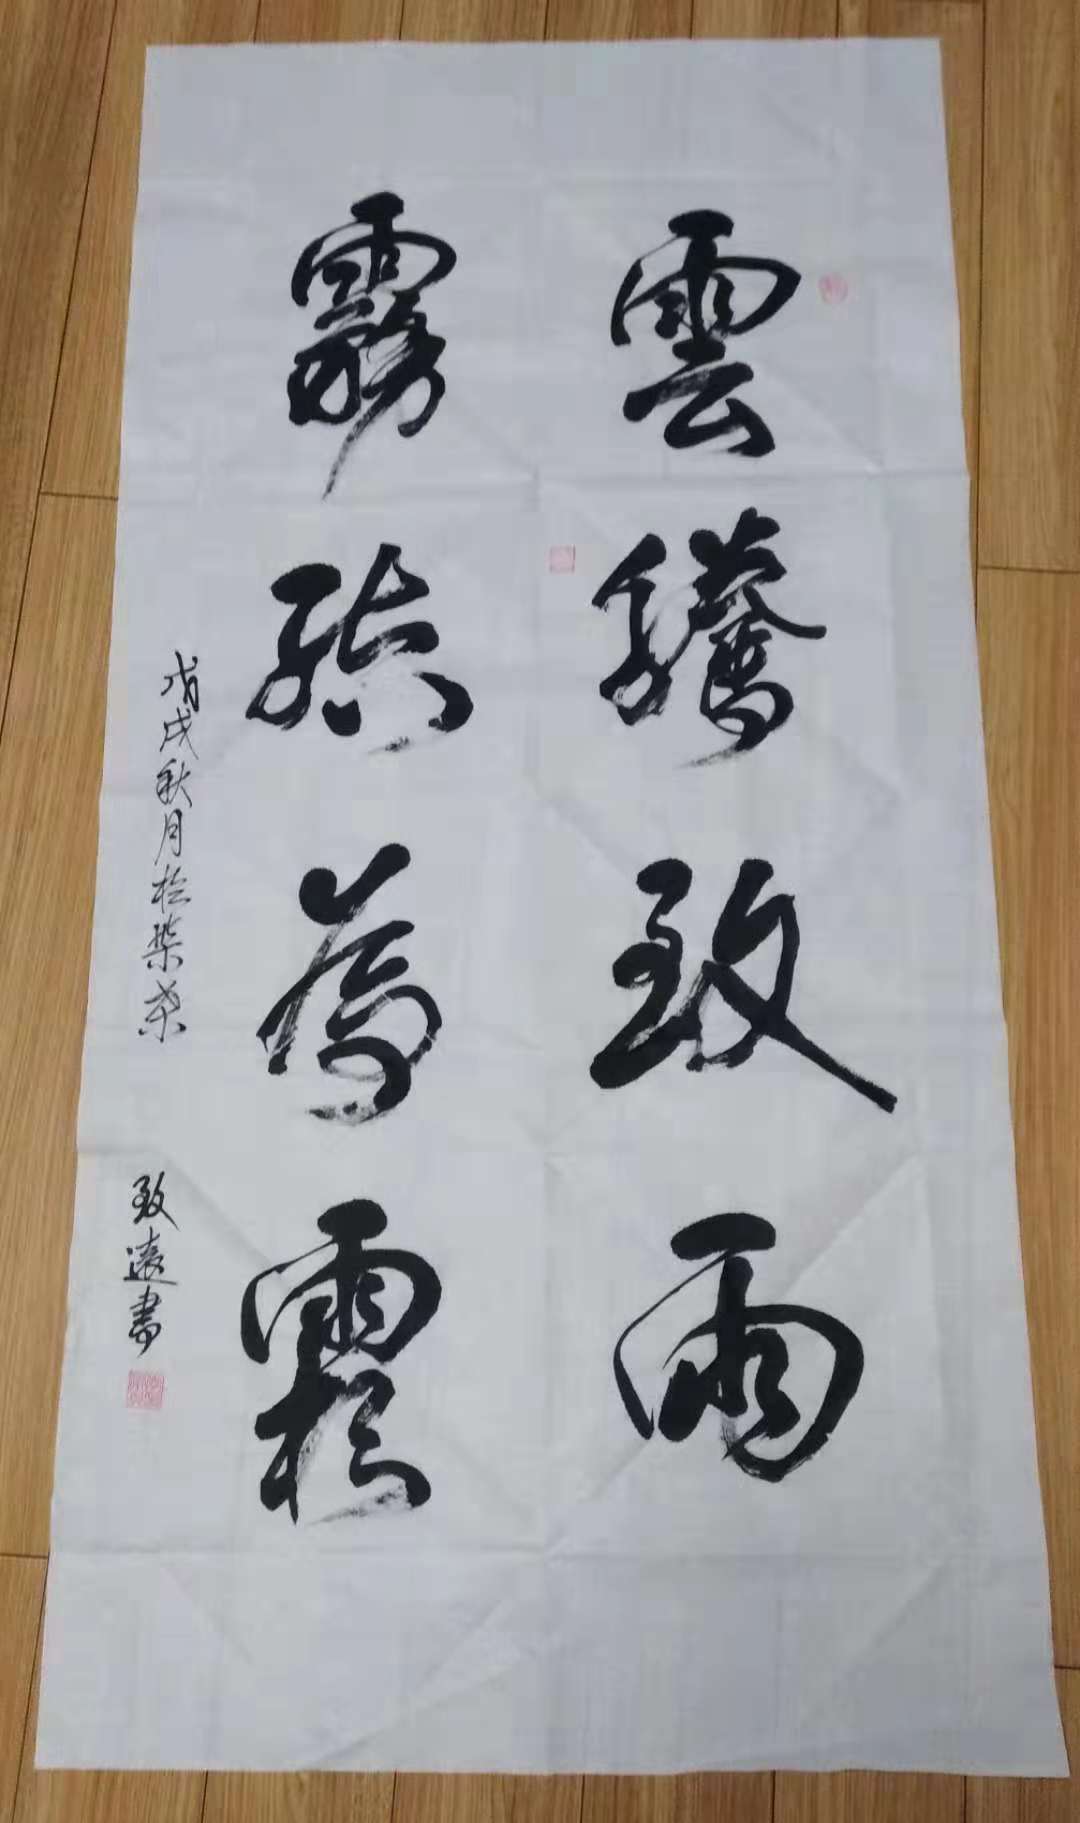 雲騰致雨
霧結為霜
戊戌秋月於柴桑
致遠書